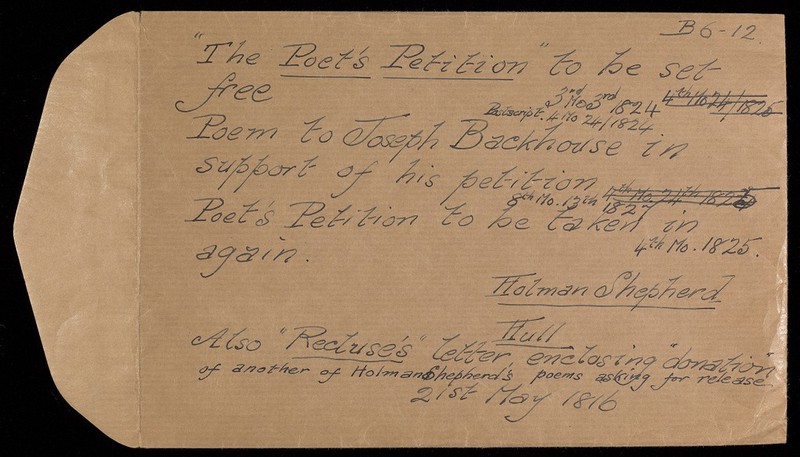 B6-12.
"The Poet's Petition" to be set
free 3rd Mo 3rd 1824 4th Mo 24/1825
Postscript. 4 Mo 24/1824
Poem to Joseph Backhouse in
support of his petition
8th Mo. 13th 182
Poet's Petition to be taken in
again. 4th Mo. 1825.
Holman Shepherd
Hull
Also "Recluse's" letter, enclosing "donation"
of another of Holman Shepherd's poems asking for release
21st May 1816